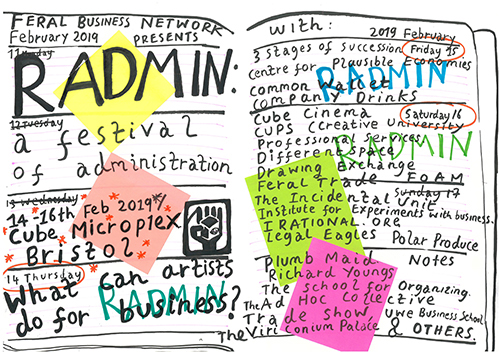 FERAL BUSINESS NETWORK
February 2019 PRESENTS
11 Monday
RADMIN:
12 Tuesday
a festival
of administration
13 Wednesday
14-16th Feb 2019
Cube Microplex
Bristol
14 Thursday
What can artists
RADMIN
do for business?
with: 2019 February
3 stages of succession Friday 15
Centre for Plausible Economies
RADMIN
Common Wallet
Company Drinks
Cube Cinema Saturday 16
CUPS Ccreative University
Professional Services
RADMIN
Different Space
Drawing Exchange
Feral Trade FoAM
Sunday 17
The Incidental Unit
Institute for Experiments with business.
IRATIONAL.ORG
Legal Eagles Polar Produce
Plumb Maid Notes
Richard Youngs
The School for Organizing.
The Ad Hoc Collective
Trade show, uwe Business School
The Viriconium Palace & OTHERS.